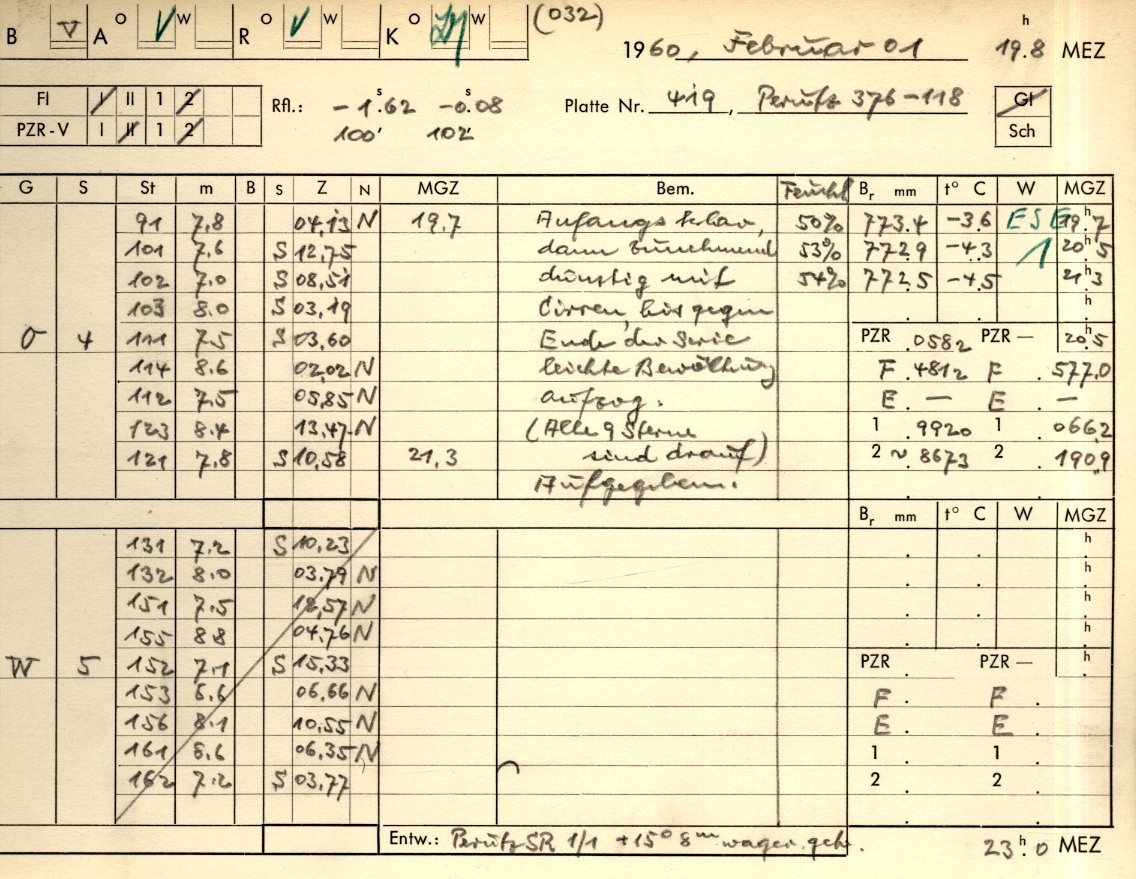 (032)
B V A O V W R O V W K O W
1960, Februar 01 19.8 h MEZ
Fl I II 1 2
PZR-V I II 1 2
Rfl.: -1.62 s -0.08 s
100' 102'
Platte Nr. 419, Perutz 376-118
Gl
Sch
G S St m B S Z N MGZ Bem. Feucht Br mm t° C W MGZ
91 7.8 04,13 N 19,7 Anfangs klar, 50% 773.4 -3.6 ESE 19.7 h
101 7.6 S 12,75 dann zunehmend 53% 772.9 -4.3 1 20.5 h
102 7.0 S 08,51 dünstig mit 54% 772.5 -4.5 21.3 h
103 8.0 S 03,19 Cirren, bis gegen h
O 4 111 7.5 S 03,60 Ende der Serie PZR .0582 PZR — 20.5
114 8.6 02,02 N leichte Bewölkung F .4812 F .577.0
112 7.5 05,85 N aufzog. E . — E . —
123 8.4 13,47 N (Alle 9 Sterne 1 .9920 1 .0662
121 7.8 S 10,58 21,3 sind drauf) 2 ~ 8673 2 .1909
Aufgegeben.
Br mm t° C W MGZ
131 7.2 S 10,23 h
132 8.0 03,79 N h
151 7.5 12,57 N h
155 8.8 04,76 N h
W 5 152 7.1 S 15,33 PZR PZR — h
153 6.6 06,66 N F . F .
156 8.1 10,55 N E . E .
161 8.6 06,35 N 1 . 1 .
162 7.2 S 03,77 2 . 2 .
Entw.: Perutz SR 1/1 +15° 8m wager. geh. 23.0 h MEZ